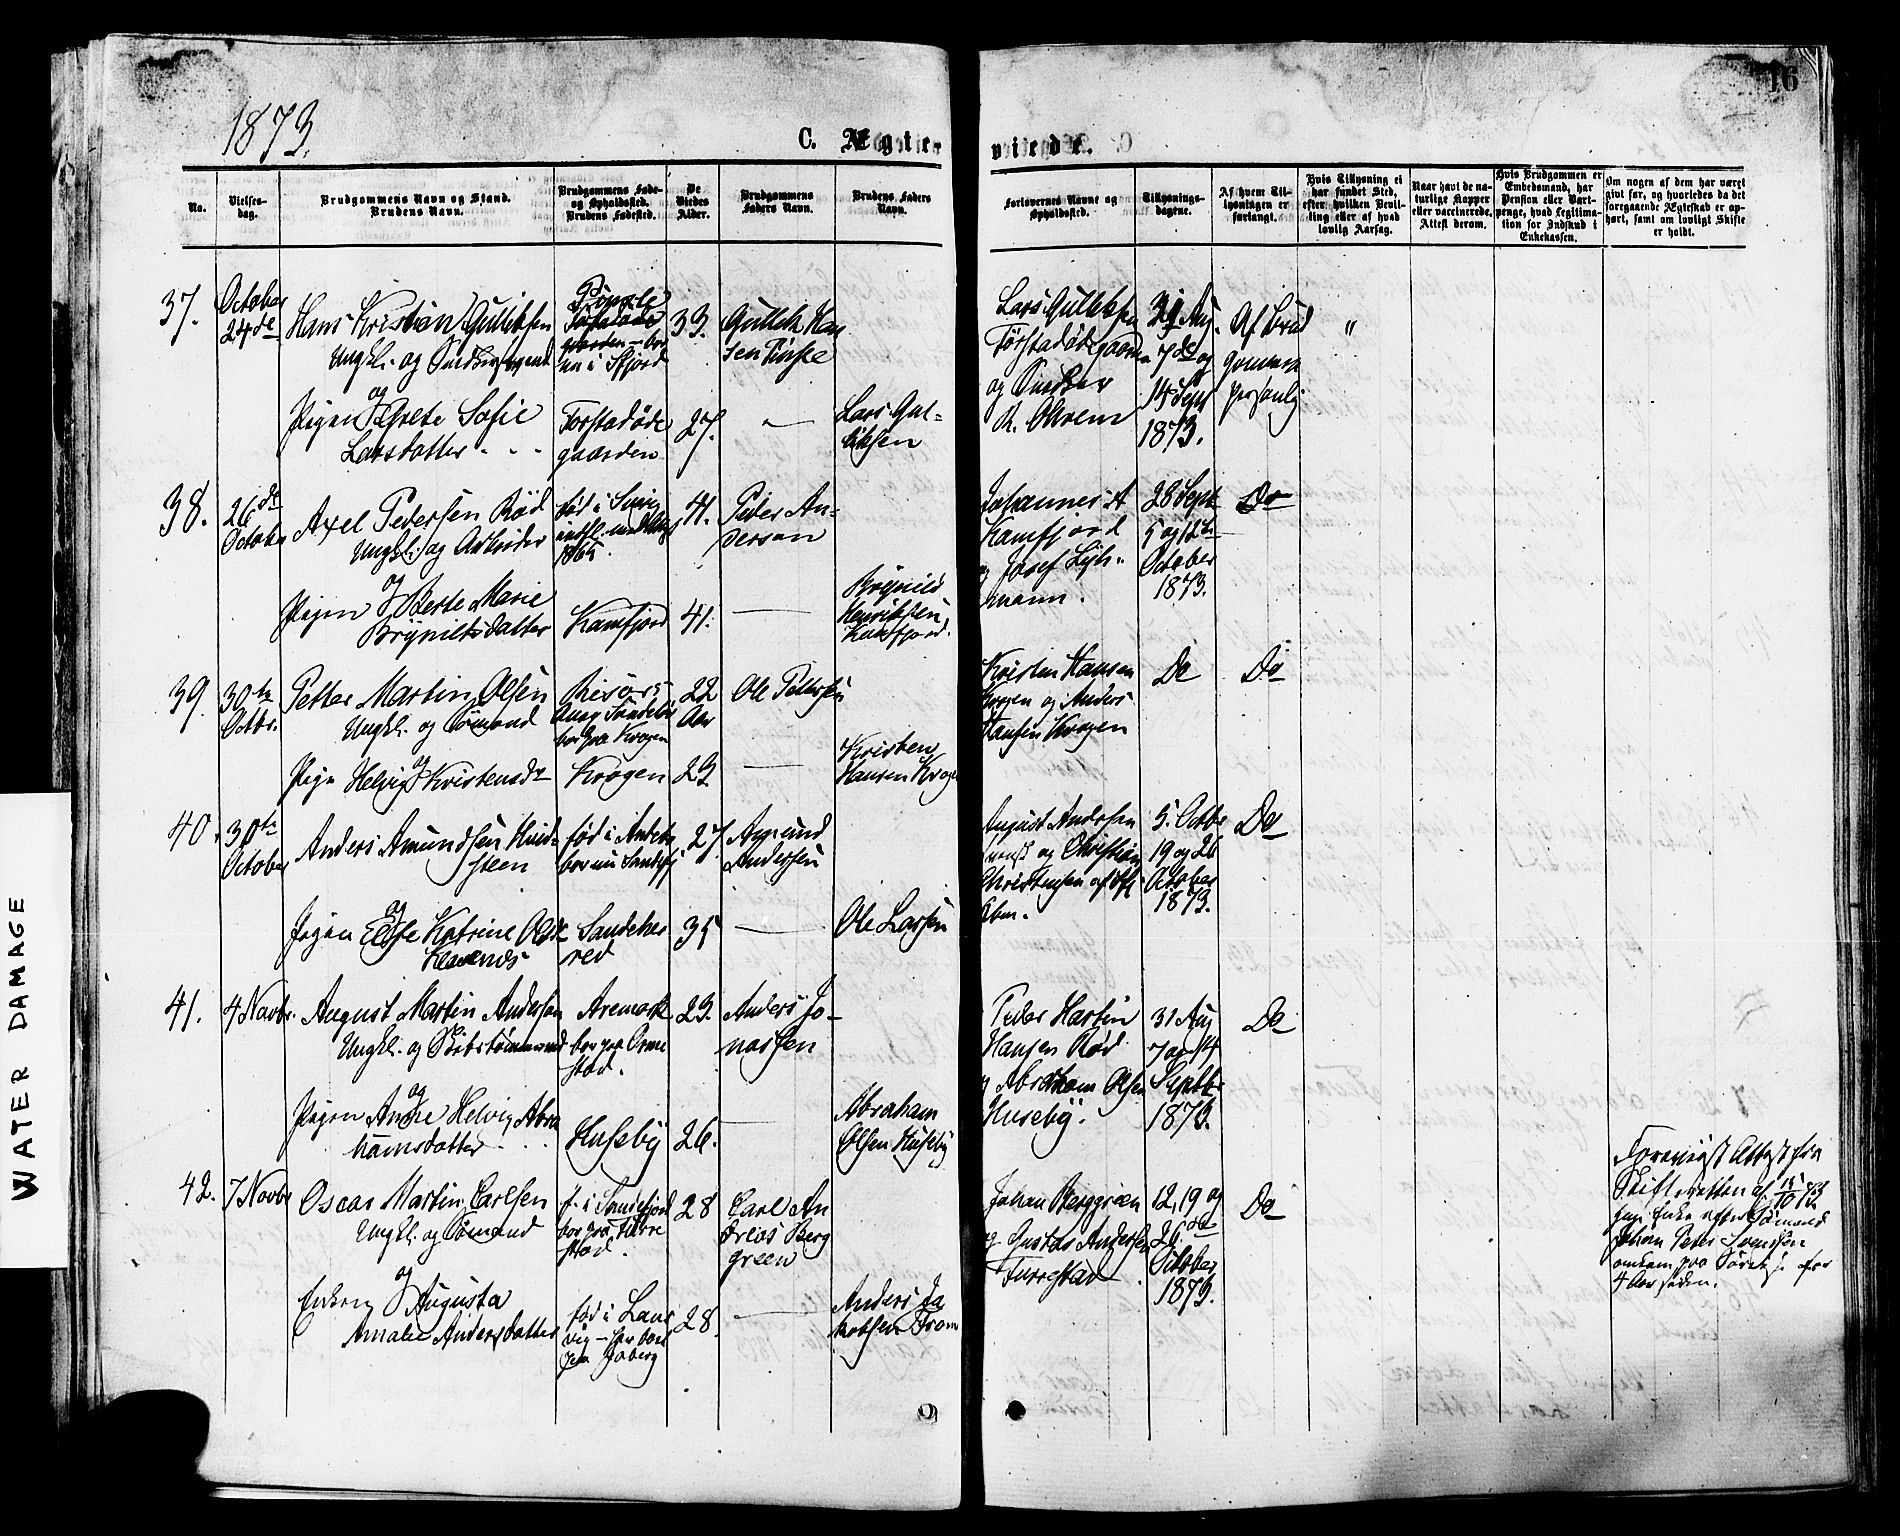 16
1873.
C. Ægte-
viede.
No.
Vielses-
dag.
Brudgommens Navn og Stand.
Brudens Navn.
Brudgommens Føde-
og Opholdssted.
Brudens Fødested.
De
Viedes
Alder.
Brudgommens
Faders Navn.
Brudens Faders
Navn.
Forlovernes Navne og
Opholdssted.
Tillysnings-
dagene.
Af hvem Til-
lysningen er
forlangt.
Hvis Tillysning ei
har fundet Sted,
efter hvilken Bevil-
ling eller af hvad
lovlig Aarsag.
Naar havt de na-
turlige Kopper
eller vaccinerede,
Attest derom.
Hvis Brudgommen er
Embedsmand, har
Pension eller Vart-
penge, hvad Legitima-
tion for Indskud i
Enkekassen.
Om nogen af dem har været
givt før, og hvorledes da det
foregaaende Ægteskab er op-
hørt, samt om lovligt Skifte
er holdt.
37.
October
24de
Hans Kristian Gulliksen
Ungkl. og
og
Pigen Grete Sofie
Larsdatter
Torstadøde
gaarden
33.
27.
Gullek Han
sen
Lars Gul-
liksen
Lars Gulliksen
og
1873.
Af Brud
gommen
personlig
"
38.
26de
October
Axel Pedersen Rød
Ungkl. og Arbeider
og
Pigen Berte Marie
Brynildsdatter
født i
1865
Kamfjord
41.
41.
Peder An-
dersen
Brynild
Henriksen
Kamfjord.
Johannes A
Kamfjord
og Josef
mann.
28 Sept
5 og 12te
October
1873.
Do
39.
30te
Octbr.
Petter Martin Olsen
Ungkl. og Sømand
og
Pige Helvig Kristensdr
bor paa Krogen
Krogen
22
Aar
23
Ole Pettersen
Kristen
Hansen Krogen
Kristen Hansen
Krogen og Anders
Hansen Krogen
Do
Do
40.
30te
October
Anders Amundsen Hvid-
steen
og
Pigen Else Katrine Olsdr
født i Andeb
bor nu i Sandefj
Sandeher
red
27.
35
Amund
Andersen
Ole Larsen
August Andersen
og Christian
Christensen
5. Octbr
19 og 26
October
1873.
Do
41.
4 Novbr.
August Martin Andersen
Ungkl. og Skibstømmermand
og
Pigen Andre Helvig Abra
hamsdatter
Aremark
bor paa Orme
stad.
Huseby
23.
26.
Anders Jo-
nassen
Abraham
Olsen Huseby
Peder Martin
Hansen Rød
og Abraham Olsen
Huseby.
31 Aug
7 og 14
Septbr
1873.
Do
42.
7 Novbr
Oscar Martin Carlsen
Ungkl. og Sømand
og
Enken Augusta
Amalie Andersdatter
f. i Sandefjord
bor paa
stad.
født i Laur
vig
28
28.
Carl An
dreas Berg
green
Anders Ja
kobsen
Johan Berggreen
og Gustav Andersen
Furustad
12, 19 og
26de
October
1873.
Do
Forevist Attest fra
Skifteretten af 15/10 73
Enke efter Sømand
Johan Peter Svensson
omkom paa Søreise for
4 Aar siden.
WATER DAMAGE